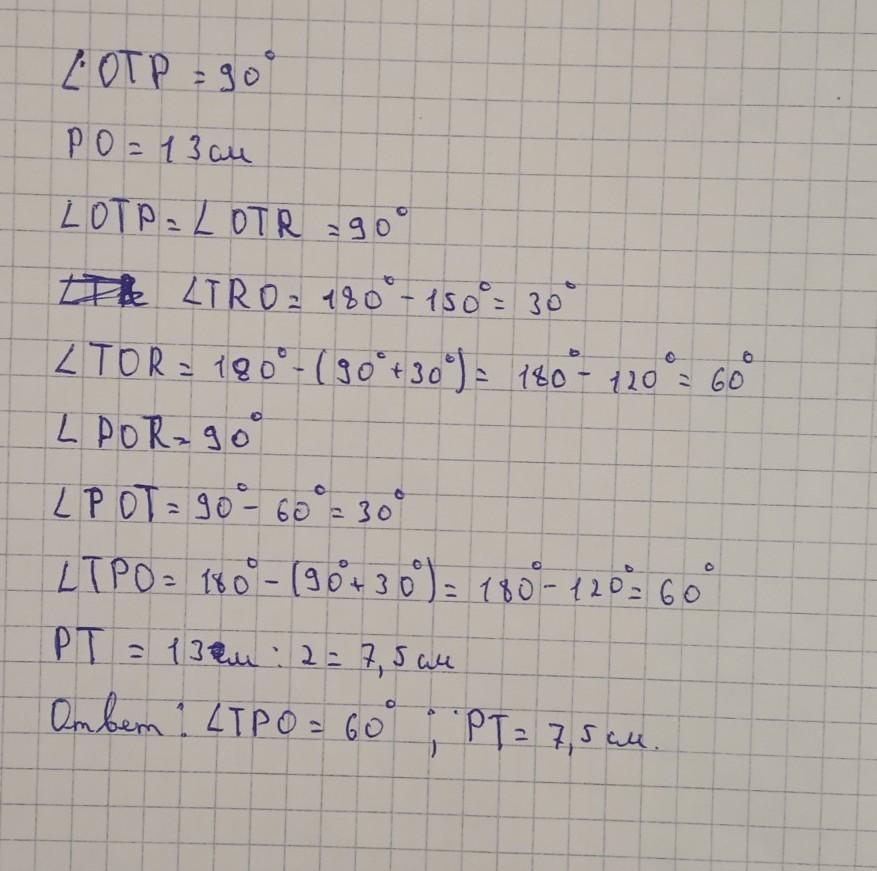 ∠OTP = 90°
PO = 13см
∠OTP = ∠OTR = 90°
∠TRO = 180° - 150° = 30°
∠TOR = 180° - (90° + 30°) = 180° - 120° = 60°
∠POR = 90°
∠POT = 90° - 60° = 30°
∠TPO = 180° - (90° + 30°) = 180° - 120° = 60°
PT = 13см : 2 = 7,5см
Ответ: ∠TPO = 60° ; PT = 7,5см.